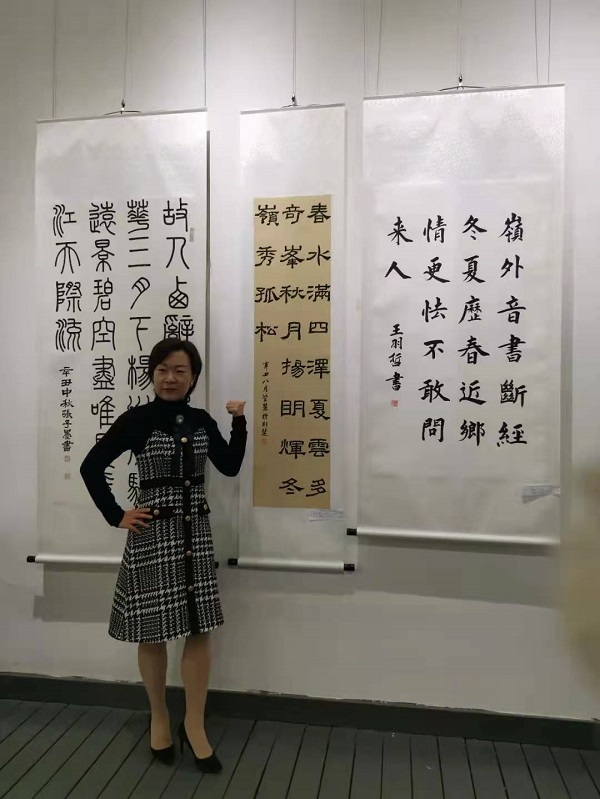 嶺外音書斷經
冬夏歷春近鄉
情更怯不敢問
来人
王羽哲書
春水滿四澤夏雲多
奇峯秋月揚明輝冬
嶺秀孤松
辛丑八月
故人西辭
華三月下楊
遠景碧空盡唯
江天際流
辛丑中秋張子墨書